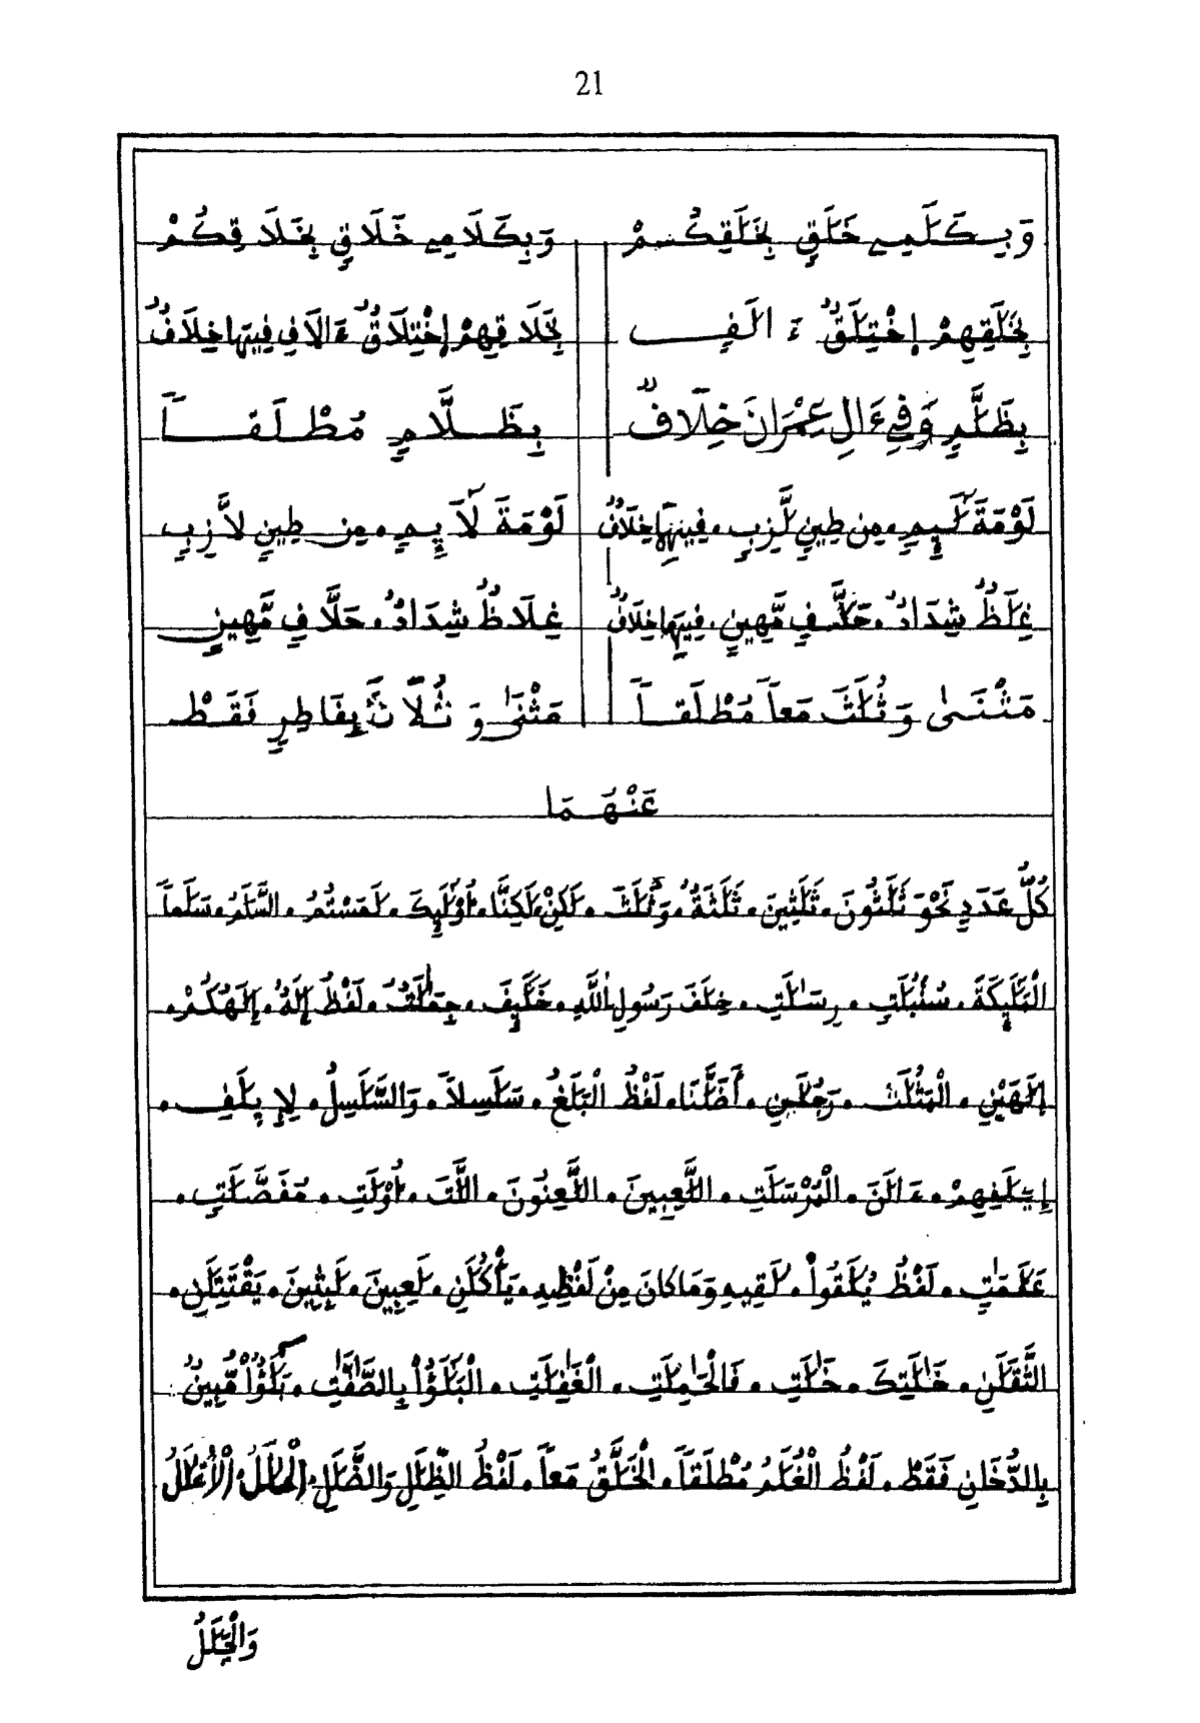 21
وَبِكَلَمِے خَلَقٍ بِخَلَقِكُمْ وَبِكَلَامِے خَلَاقٍ بِخَلَاقِكُمْ
بِخَلَقِهِمْ إِخْتِلَقٌ ءَالَفٍ بِخَلَاقِهِمْ إِخْتِلَاقٌ ءَالَافٍ فِيهَا خِلَافٌ
بِظَلَّمٍ وَفِے ءَالِ عِمْرَانَ خِلَافٌ بِظَلَّامٍ مُطْلَقاً
لَوْمَةَ لَئِمٍ مِن طِينٍ لَّزِبٍ فِيهَا خِلَافٌ لَوْمَةَ لَآئِمٍ مِن طِينٍ لَّازِبٍ
غِلَظٌ شِدَادٌ حَلَّفٍ مَّهِينٍ فِيهَا خِلَافٌ غِلَاظٌ شِدَادٌ حَلَّافٍ مَّهِينٍ
مَثْنَىٰ وَثُلَثَ مَعاً مُطْلَقاً مَثْنَىٰ وَثُلَاثَ بِفَاطِرٍ فَقَطْ
عَنْهُمَا
كُلُّ عَدَدٍ نَحْوَ ثَلَثُونَ ثَلَثِينَ ثَلَثَةٌ وَثُلَثَ لَكِنْ لَكِنَّا أُوْلَئِكَ لَمَسْتُمُ السَّلَمُ سَلَماً
الْمَلَئِكَةَ سُنْبُلَتٍ رِسَلَتِ خِلَفَ رَسُولِ اللَّهِ خَلَئِفَ جِمَلَتٌ لَفْظُ إِلَهٌ إِلَهُكُمْ
إِلَهَيْنِ الْمَثُلَتُ رَجُلَنِ أَضَلَّنَا لَفْظُ الْبَلَغُ سَلَسِلاً وَالسَّلَسِلُ لِإِيلَفِ
إِيلَفِهِمْ ءَالَنَ الْمُرْسَلَتِ اللَّعِبِينَ اللَّعِنُونَ اللَّتَ أُوْلَتِ مُفَصَّلَتٍ
عَلَمَتٍ لَفْظُ يُلَقُواْ لَقِيهِ وَمَا كَانَ مِنْ لَفْظِهِ يَأْكُلَنِ لَعِبِينَ لَبِثِينَ يَقْتَتِلَنِ
الثَّقَلَنِ خَلَتِكَ خَلَتِ فَالْحَمِلَتِ الْغَفِلَتِ الْبَلَؤُاْ بِالصَّافَّتِ بَلَؤٌاْ مُّبِينٌ
بِالدُّخَانِ فَقَطْ لَفْظُ الْغُلَمُ مُطْلَقاً الْخَلَّقُ مَعاً لَفْظُ الظِّلَلِ وَالضَّلَلِ